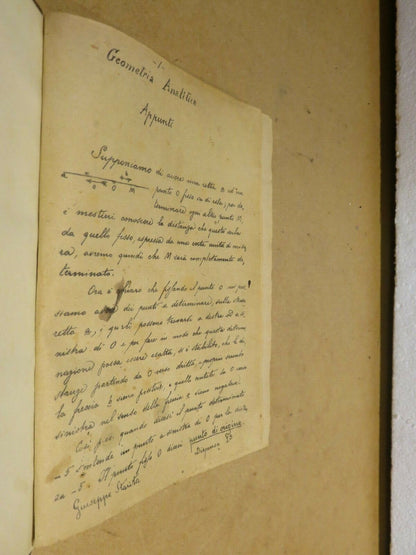 - 1 -
Geometria Analitica
Appunti
Supponiamo di avere una retta a ed un
punto O fisso su di essa; per de
terminare ogni altro punto M,
è mestieri conoscere la distanza che questo ha
da quello fisso, espressa da una certa unità di misu
ra, avremo quindi che M sarà completamente de
terminato.
Ora è chiaro che fissando il punto O noi pos
siamo avere dei punti a determinare, sulla stessa
retta a, e questi possono trovarsi a destra o a si
nistra di O e per fare in modo che questa determi
nazione possa essere esatta, si è stabilito, che le di
stanze partendo da O verso dritta e proprio secondo
la freccia b siano positive, e quelle contate da O verso
sinistra nel senso della freccia s siano negative.
Così p. es. quando dicesi il punto determinato
- 5 s'intende un punto a sinistra di O per la distan
za - 5. Il punto fisso O dicesi punto di origine
Giuseppe
Dispensa
a
b
s
O
M